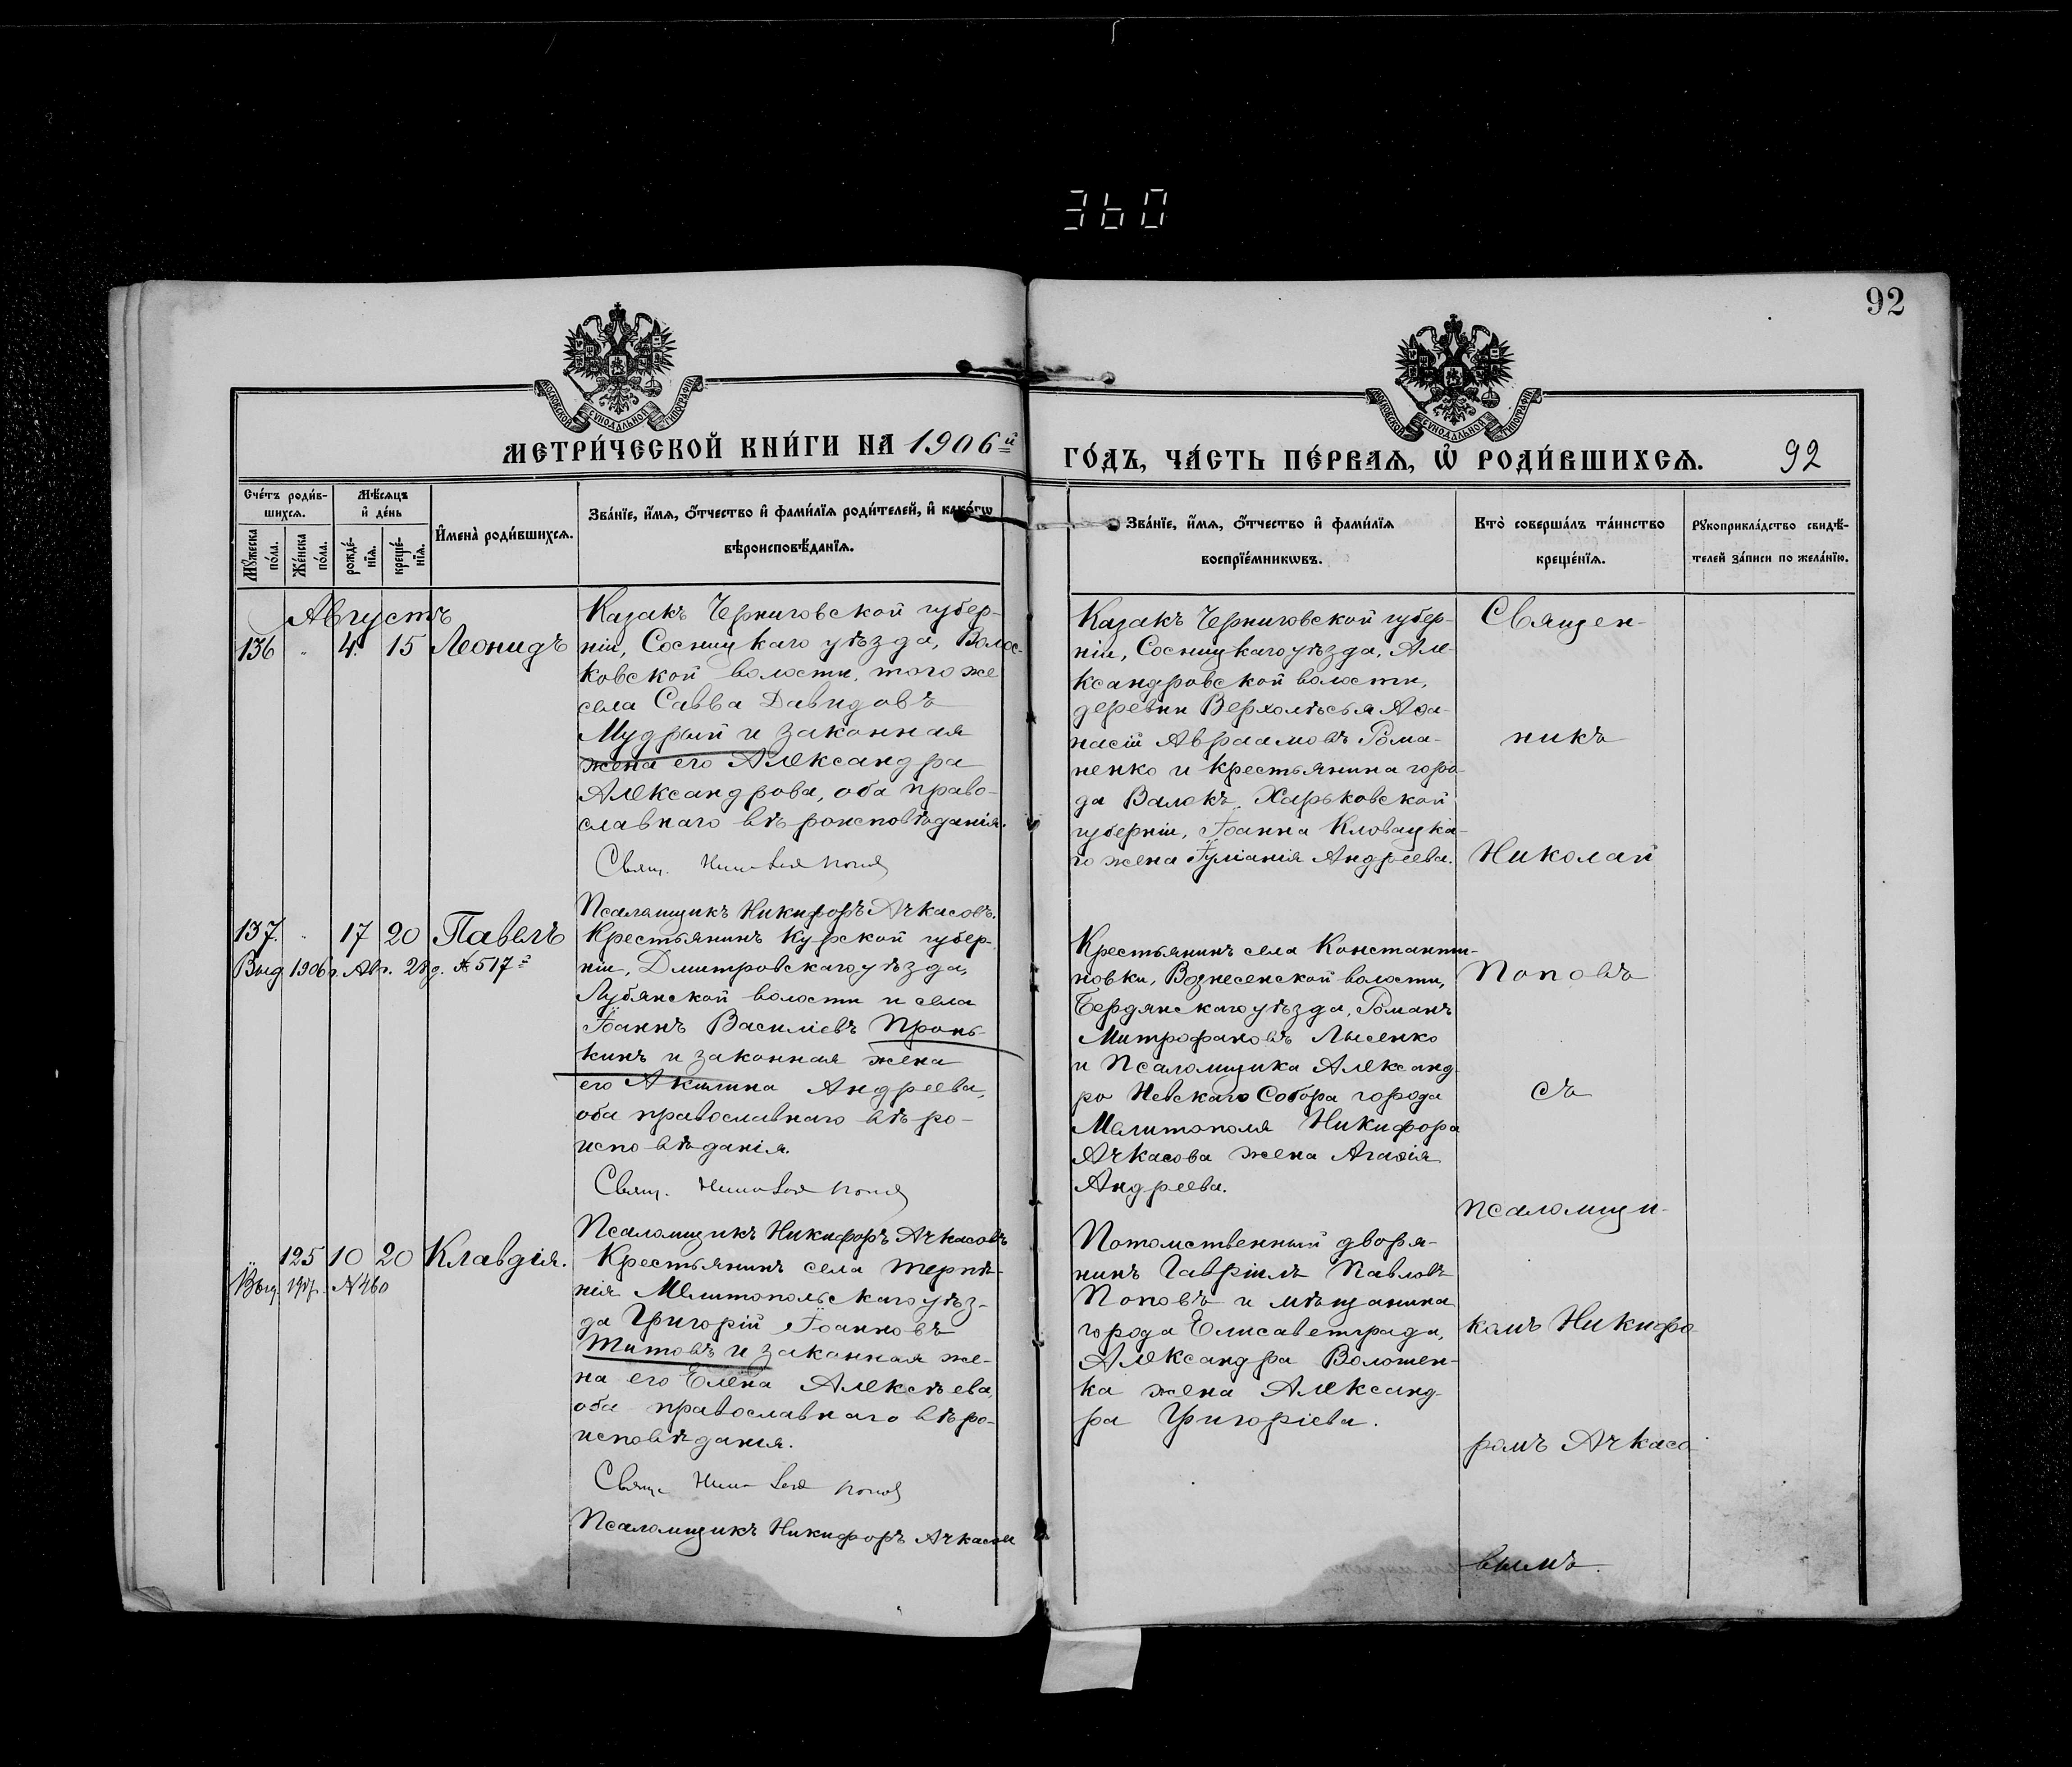 360
92
МОСКОВСКОЙ СѴНОДАЛЬНОЙ ТИПОГРАФІИ
МОСКОВСКОЙ СѴНОДАЛЬНОЙ ТИПОГРАФІИ
МЕТРИ́ЧЕСКОЙ КНИ́ГИ НА 1906й
ГО́ДЪ, ЧА́СТЬ ПЕ́РВАЯ, Ѡ҆ РОДИ́ВШИХСЯ.
92
Сче́тъ роди́в-
шихся.
Мꙋ́жеска по́ла.
Же́нска по́ла.
Мѣ́сяцъ
и҆ де́нь
рожде́-
нїя.
креще́-
нїя.
И҆мена̀ роди́вшихся.
Зва́нїе, и҆́мя, ѻ҆́тчество и҆ фами́лїя роди́телей, и҆ како́гѡ
вѣроисповѣ́данїя.
Зва́нїе, и҆́мя, ѻ҆́тчество и҆ фами́лїя
воспрїе́мникѡвъ.
Кто̀ соверша́лъ та́инство
креще́нїя.
Рꙋкоприкла́дство свидѣ́-
телей за́писи по жела́нїю.
Августъ
136 " 4. 15 Леонидъ
Казакъ Черниговской губер-
ніи, Сосницкаго уѣзда, Волос-
ковской волости, того же
села Савва Давидовъ
Мудрый и законная
жена его Александра
Александрова, оба право-
славнаго вѣроисповѣданія.
Свящ.
Псаломщикъ Никифоръ Ачкасовъ.
Казакъ Черниговской губер-
ніи, Сосницкаго уѣзда, Але-
ксандровской волости,
деревни Верхолѣсья Аѳа-
насій Авраамовъ Рома-
ненко и крестьянина горо-
да Валокъ, Харьковской
губерніи, Іоанна Кловацка-
го жена Іуліанія Андреева.
137. " 17 20 Павелъ
Выд. 1906 г. Авг. 28 д. № 517й
Крестьянинъ Курской губер-
ніи, Дмитровскаго уѣзда,
Лубянской волости и села
Іоаннъ Василіевъ Пронь-
кинъ и законная жена
его Акилина Андреева,
оба православнаго вѣро-
исповѣданія.
Свящ.
Псаломщикъ Никифоръ Ачкасовъ
Крестьянинъ села Константи-
новки, Вознесенской волости,
Бердянскаго уѣзда, Романъ
Митрофановъ Лысенко
и Псаломщика Александ-
ро Невскаго Собора города
Мелитополя Никифора
Ачкасова жена Агаѳія
Андреева.
125 10 20 Клавдія.
Выд. № 460
Крестьянинъ села Терпѣ-
нія Мелитопольскаго уѣз-
да Григорій Іоанновъ
Титовъ и законная же-
на его Елена Алексѣева,
оба православнаго вѣро-
исповѣданія.
Свящ.
Псаломщикъ Никифоръ Ачкасовъ
Потомственный дворя-
нинъ Гавріилъ Павловъ
Поповъ и мѣщанина
города Елисаветграда,
Александра Волошен-
ка жена Александ-
ра Григоріева.
Священ-
никъ
Николай
Поповъ
съ
псаломщи-
комъ Никифо-
ромъ Ачкасо-
вымъ.